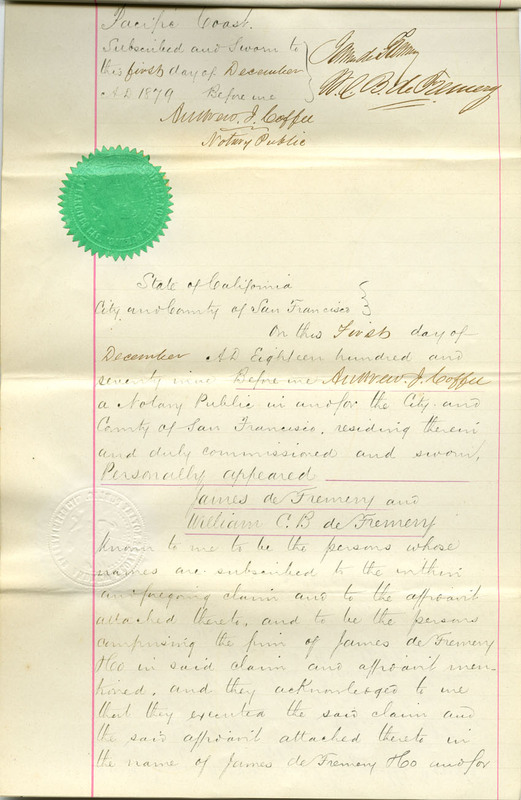 Pacific Coast.
Subscribed and Sworn to
this first day of December
A.D 1879 Before me
James de Fremery
W. C. B. de Fremery
Andrew. J. Coffee
Notary Public
State of California
City and County of San Francisco
On this First day of
December AD Eighteen hundred and
seventy nine Before me Andrew. J. Coffee
a Notary Public in and for the City and
County of San Francisco, residing therein
and duly commissioned and sworn,
Personally appeared
James de Fremery and
William C. B de Fremery
known to me to be the persons whose
names are subscribed to the within
and foregoing claim and to the affidavit
attached thereto, and to be the persons
comprising the firm of James de Fremery
&Co in said claim and affidavit men-
tioned, and they acknowledged to me
that they executed the said claim and
the said affidavit attached thereto in
the name of James de Fremery &Co and for